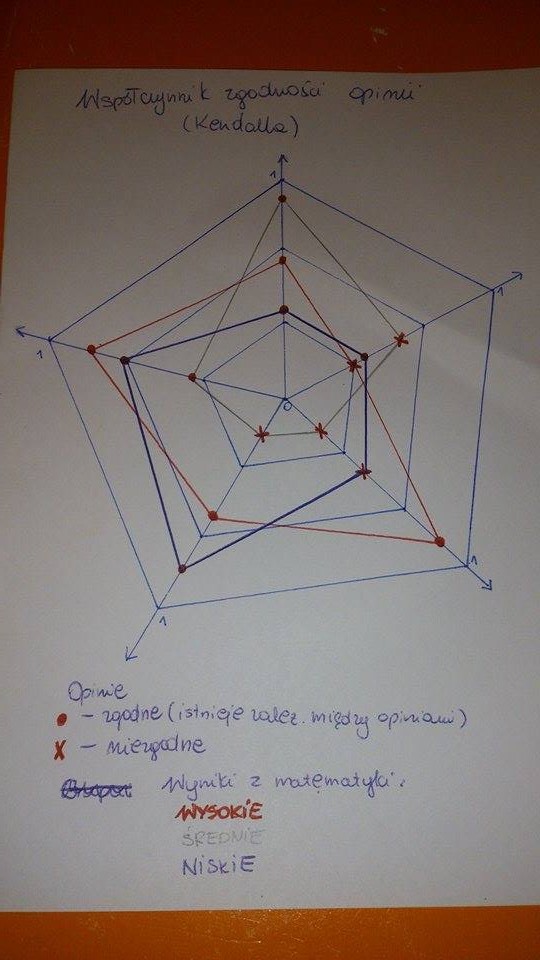 Współczynnik zgodności opinii
(Kendalla)
1
1
1
0
1
1
Opinie
• – zgodne (istnieje zależ. między opiniami)
x – niezgodne
Wyniki z matematyki:
WYSOKIE
ŚREDNIE
NISKIE